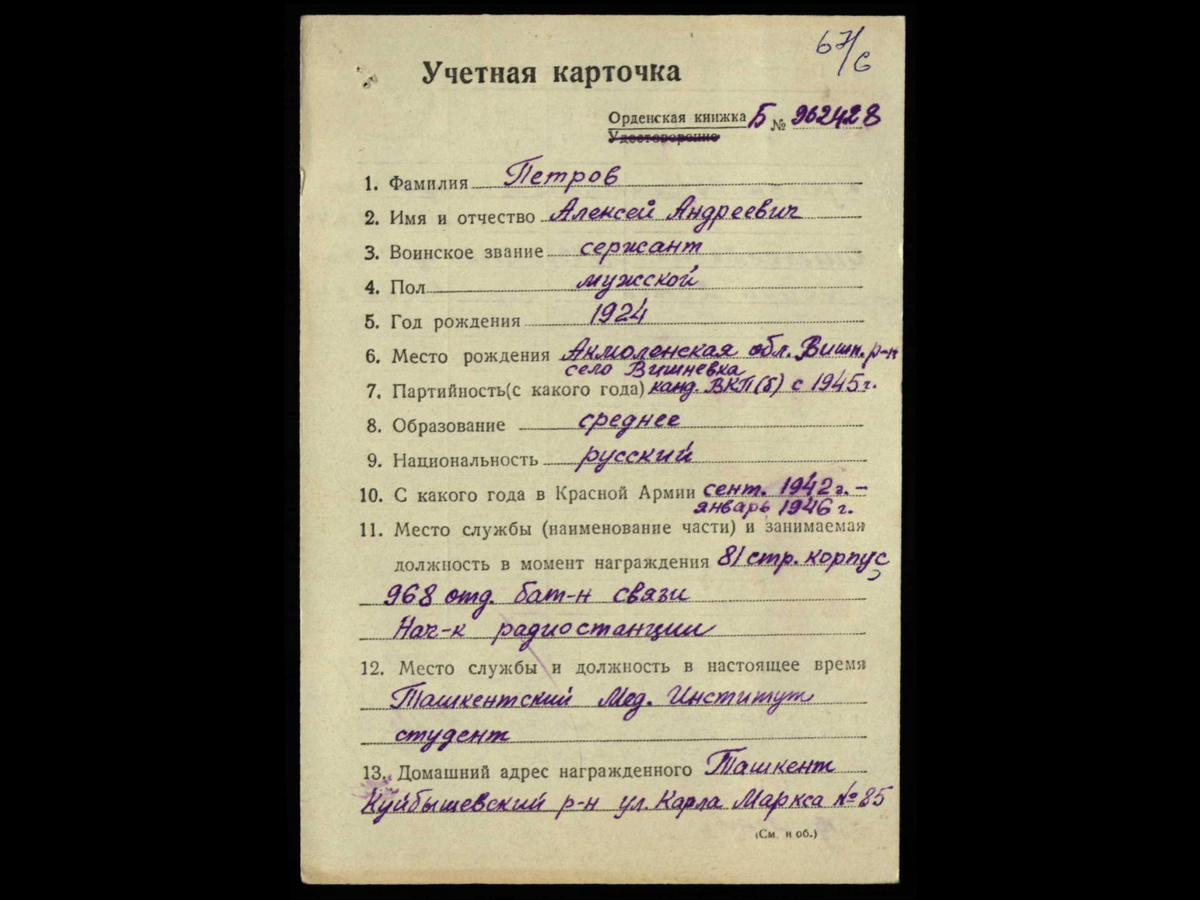 67/6
Учетная карточка
Орденская книжка Б № 962428
Удостоверение
1. Фамилия Петров
2. Имя и отчество Алексей Андреевич
3. Воинское звание сержант
4. Пол мужской
5. Год рождения 1924
6. Место рождения Акмоленская обл. Вишн. р-н
село Вишневка
7. Партийность(с какого года) канд. ВКП(б) с 1945г.
8. Образование среднее
9. Национальность русский
10. С какого года в Красной Армии сент. 1942г. –
январь 1946 г.
11. Место службы (наименование части) и занимаемая
должность в момент награждения 81 стр. корпус,
968 отд. бат-н связи
Нач-к радиостанции
12. Место службы и должность в настоящее время
Ташкентский Мед. Институт
студент
13. Домашний адрес награжденного Ташкент
Куйбышевский р-н ул. Карла Маркса № 85
(См. н об.)